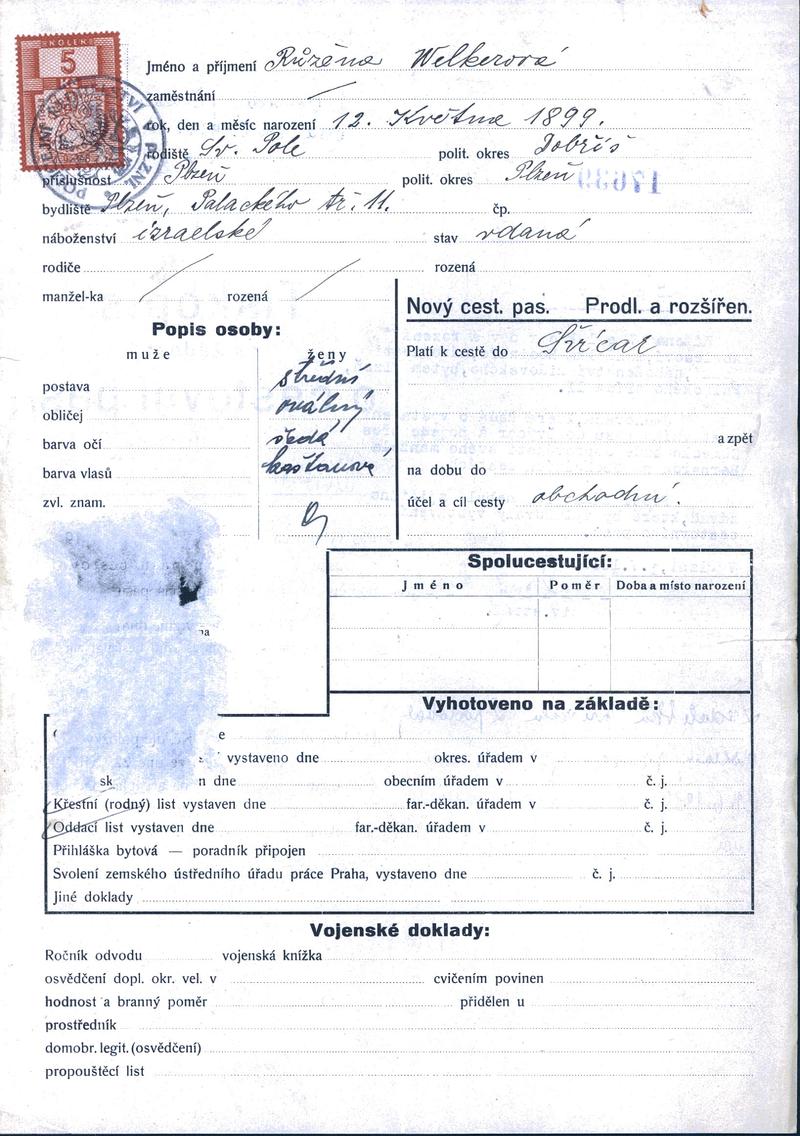 KOLEK
5
Jméno a příjmení Růžena Welkerová
zaměstnání
rok, den a měsíc narození 12. Května 1899.
rodiště Sv. Pole polit. okres Dobříš
příslušnost Plzeň polit. okres Plzeň
bydliště Plzeň, Palackého tř. 11. čp.
náboženství izraelské stav vdaná
rodiče rozená
manžel-ka rozená
Nový cest. pas. Prodl. a rozšířen.
Popis osoby:
muže ženy
postava střední
obličej oválný
barva očí šedá
barva vlasů kaštanová
zvl. znam.
Platí k cestě do Švýcar
a zpět
na dobu do
účel a cíl cesty obchodní.
Spolucestující:
Jméno Poměr Doba a místo narození
Vyhotoveno na základě:
vystaveno dne okres. úřadem v
sk n dne obecním úřadem v č. j.
Křestní (rodný) list vystaven dne far.-děkan. úřadem v č. j.
Oddací list vystaven dne far.-děkan. úřadem v č. j.
Přihláška bytová — poradník připojen
Svolení zemského ústředního úřadu práce Praha, vystaveno dne č. j.
Jiné doklady
Vojenské doklady:
Ročník odvodu vojenská knížka
osvědčení dopl. okr. vel. v cvičením povinen
hodnost a branný poměr přidělen u
prostředník
domobr. legit. (osvědčení)
propouštěcí list